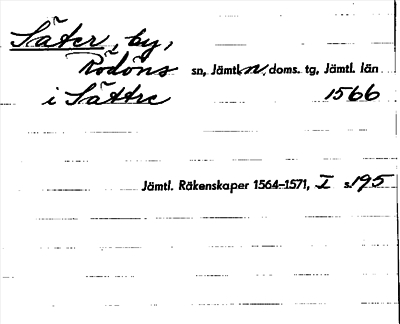 Säter, by,
Rödöns sn, Jämtl. n. doms. tg, Jämtl. län
i Sättre 1566
Jämtl. Räkenskaper 1564–1571, I s. 195